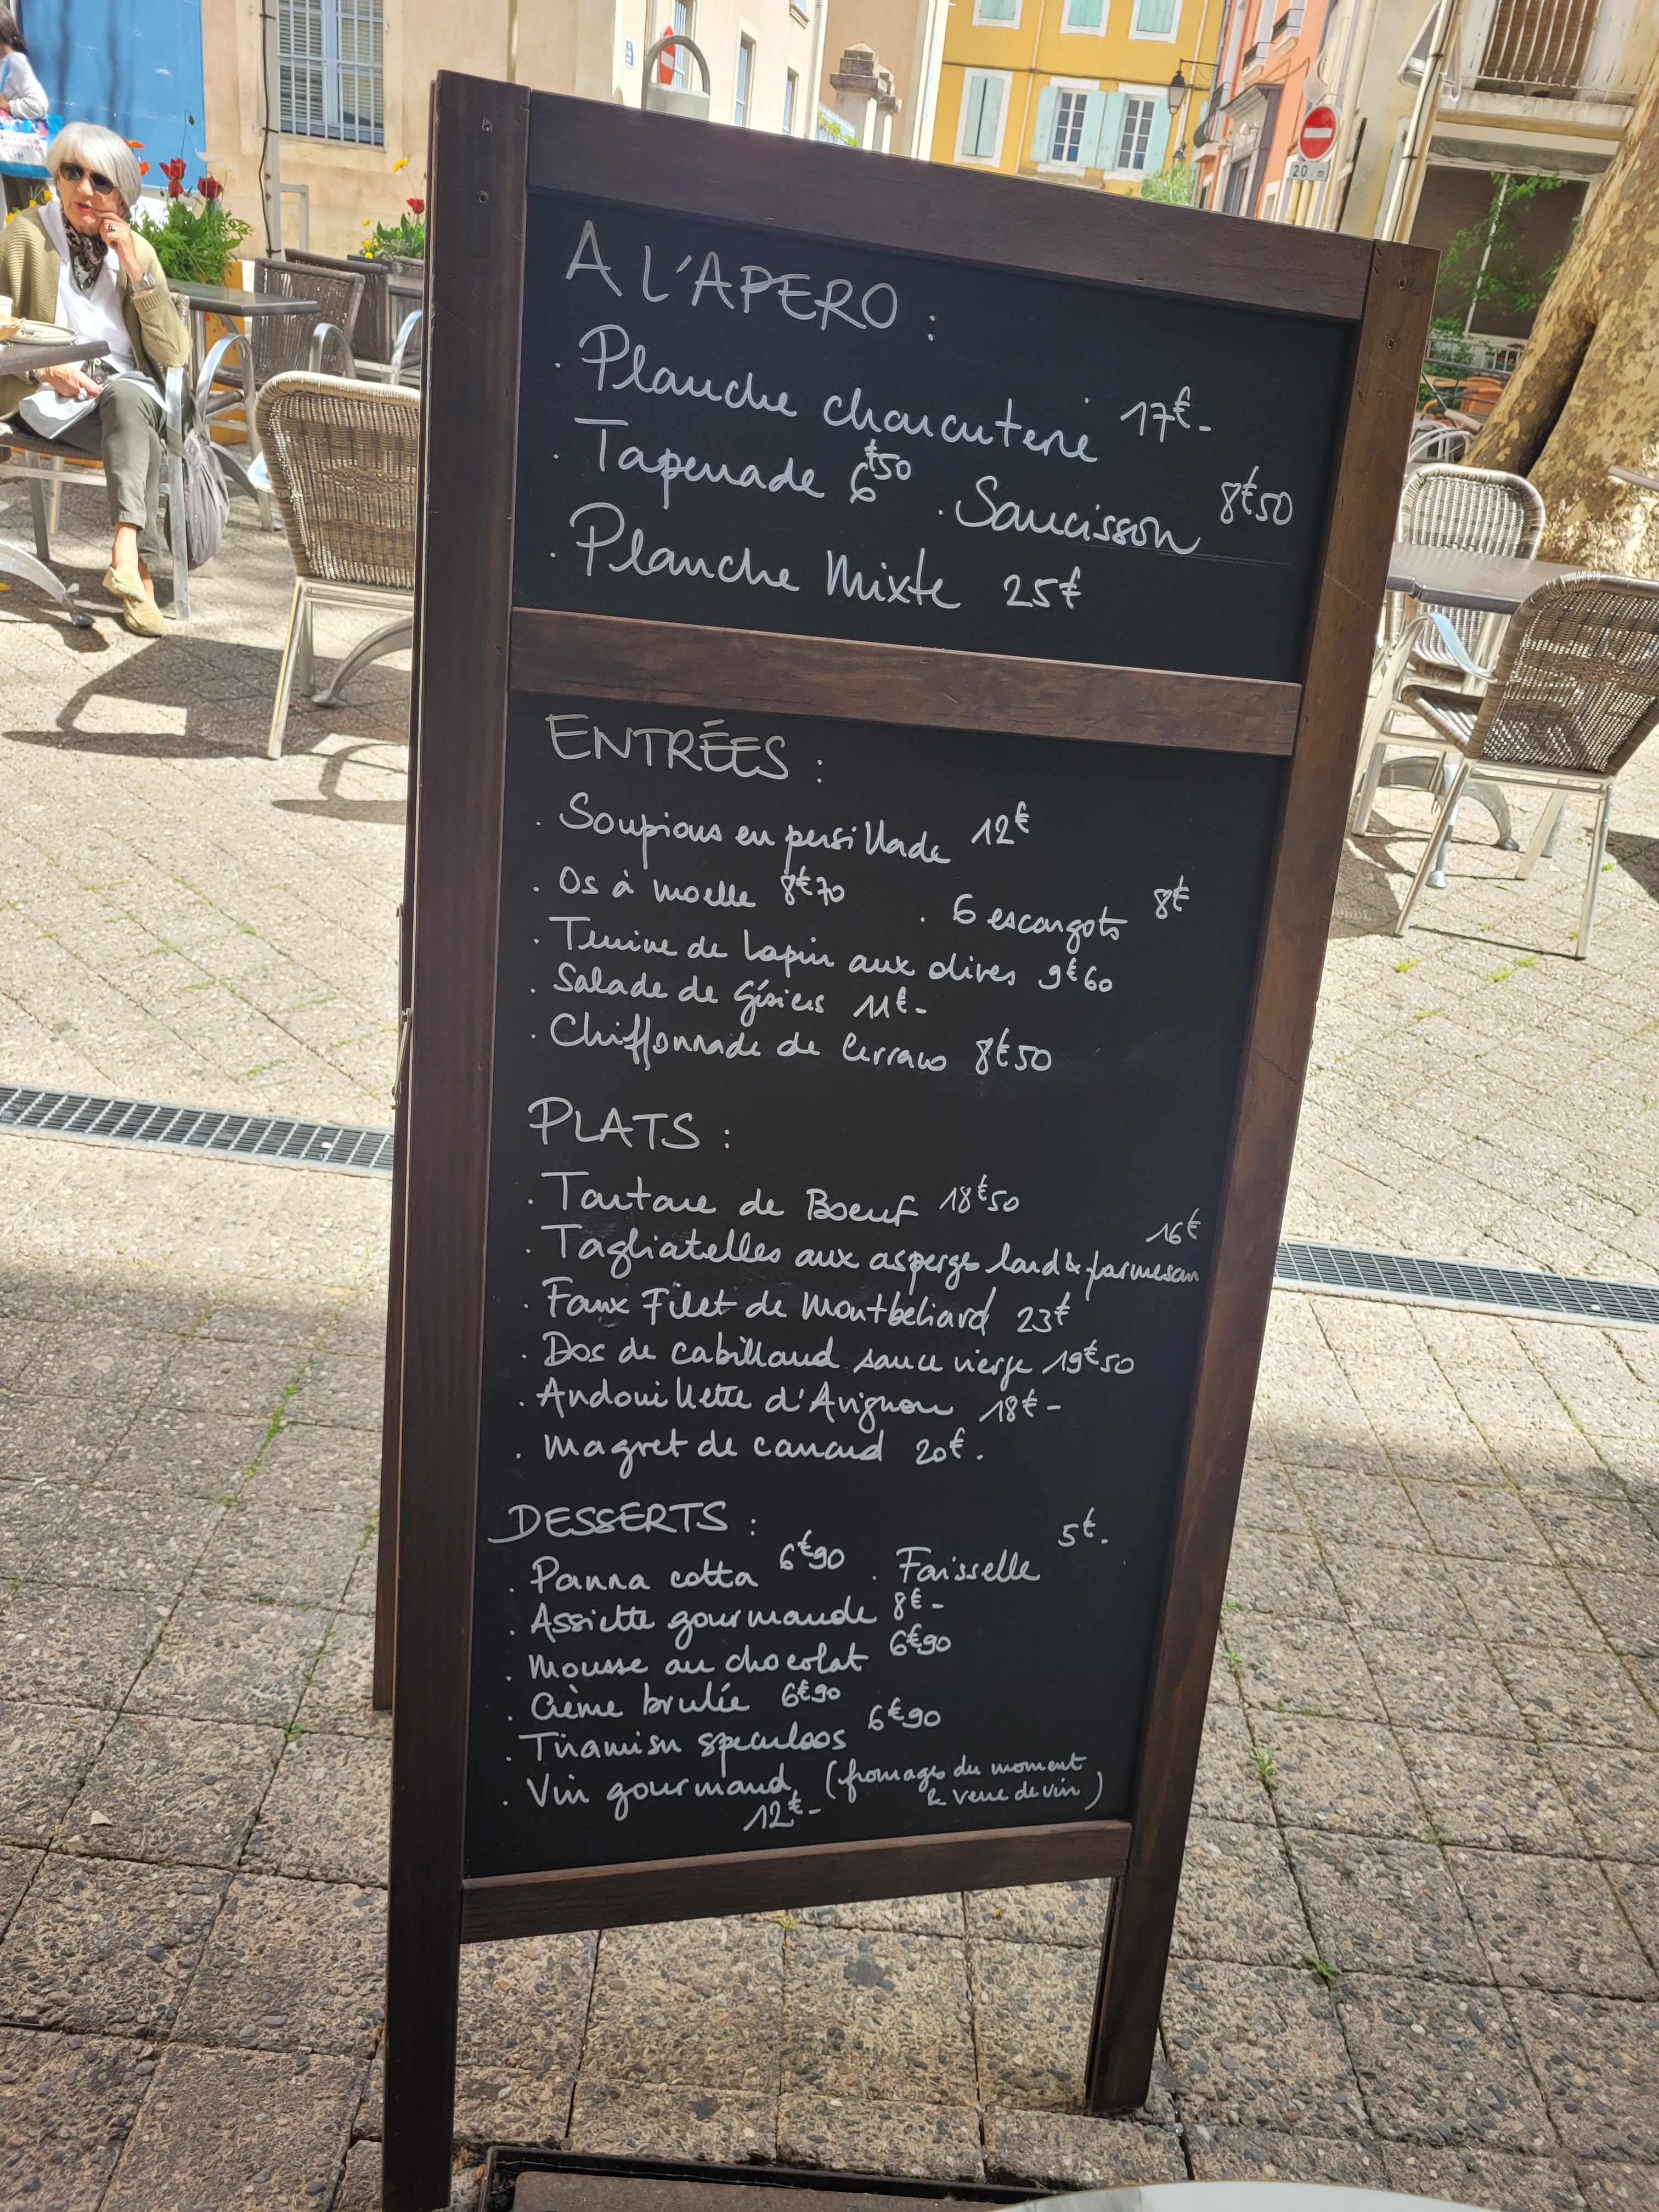 A L'APERO :
. Planche charcuterie 17€-
. Tapenade 6€50 . Saucisson 8€50
. Planche Mixte 25€
ENTRÉES :
. Soupions en persillade 12€
. Os à moelle 8€70 . 6 escargots 8€
. Terrine de lapin aux olives 9€60
. Salade de Gésiers 11€-
. Chiffonnade de Serrano 8€50
PLATS :
. Tartare de Boeuf 18€50
. Tagliatelles aux asperges lard & parmesan 16€
. Faux Filet de Montbeliard 23€
. Dos de cabillaud sauce vierge 19€50
. Andouillette d'Avignon 18€-
. Magret de canard 20€.
DESSERTS :
. Panna cotta 6€90 . Faisselle 5€.
. Assiette gourmande 8€-
. Mousse au chocolat 6€90
. Crème brulée 6€90
. Tiramisu speculoos 6€90
. Vin gourmand (fromages du moment
12€- & verre de vin)
20 m